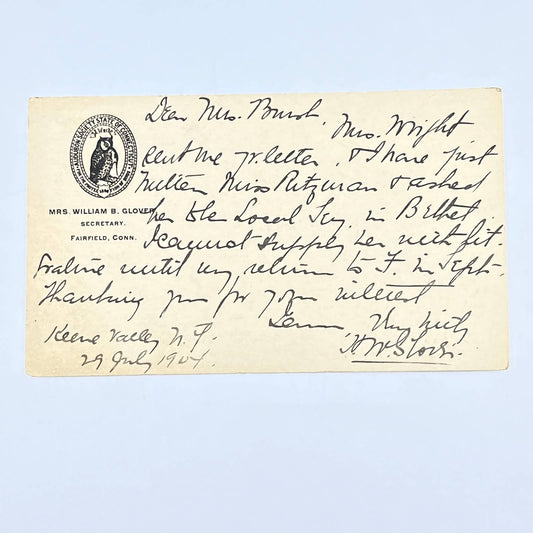 AUDUBON SOCIETY STATE OF CONNECTICUT
MRS. WILLIAM B. GLOVER
SECRETARY.
FAIRFIELD, CONN.
Dear Mrs. Burch.
Mrs. Wright
sent me yr. letter, & I have just
written Miss & asked
her to be Local Sec'y. in Bethel.
I cannot supply her with lit-
erature until my return to F. in Sept-
Thanking you for your interest
Very truly
H. W. Glover.
Keene Valley N. Y.
29 July 1904.